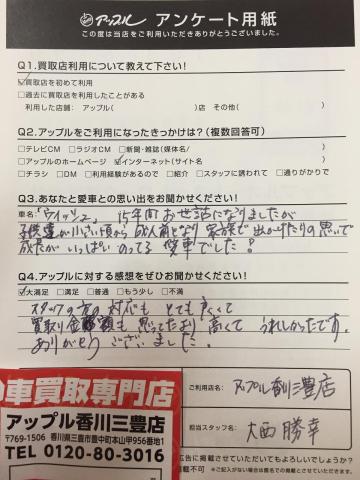 アップル アンケート用紙
この度は当店をご利用いただきありがとうございました。
Q1.買取店利用について教えて下さい!
☑買取店を初めて利用
□過去に買取店を利用したことがある
利用した店舗: アップル( )店 その他( )
Q2.アップルをご利用になったきっかけは?(複数回答可)
□テレビCM □ラジオCM □新聞・雑誌(媒体名/ )
□アップルのホームページ ☑インターネット(サイト名 )
□チラシ □DM □利用経験があるので □紹介 □スタッフに誘われて □通りがかりで
Q3.あなたと愛車との思い出をお聞かせください!
車名:「ウィッシュ」 15年間お世話になりましたが
子供達が小さい頃から成人前となり家族で出かけたりの思いで
成長がいっぱいのってる愛車でした!
Q4.アップルに対する感想をぜひお聞かせください!
☑大満足 □満足 □普通 □もう少し □不満
スタッフの方の対応も とても良くて
買取り金額も思ってたより高くて うれしかったです。
ありがとうございました。
車買取専門店
アップル香川三豊店
〒769-1506 香川県三豊市豊中町本山甲956番地1
TEL 0120-80-3016
ご利用店名: アップル香川三豊店
担当スタッフ名: 大西勝幸
広告に掲載させていただいてもよろしいでしょうか?
掲載不可 ※ご記入がない場合は匿名での掲載とさせていただきます。